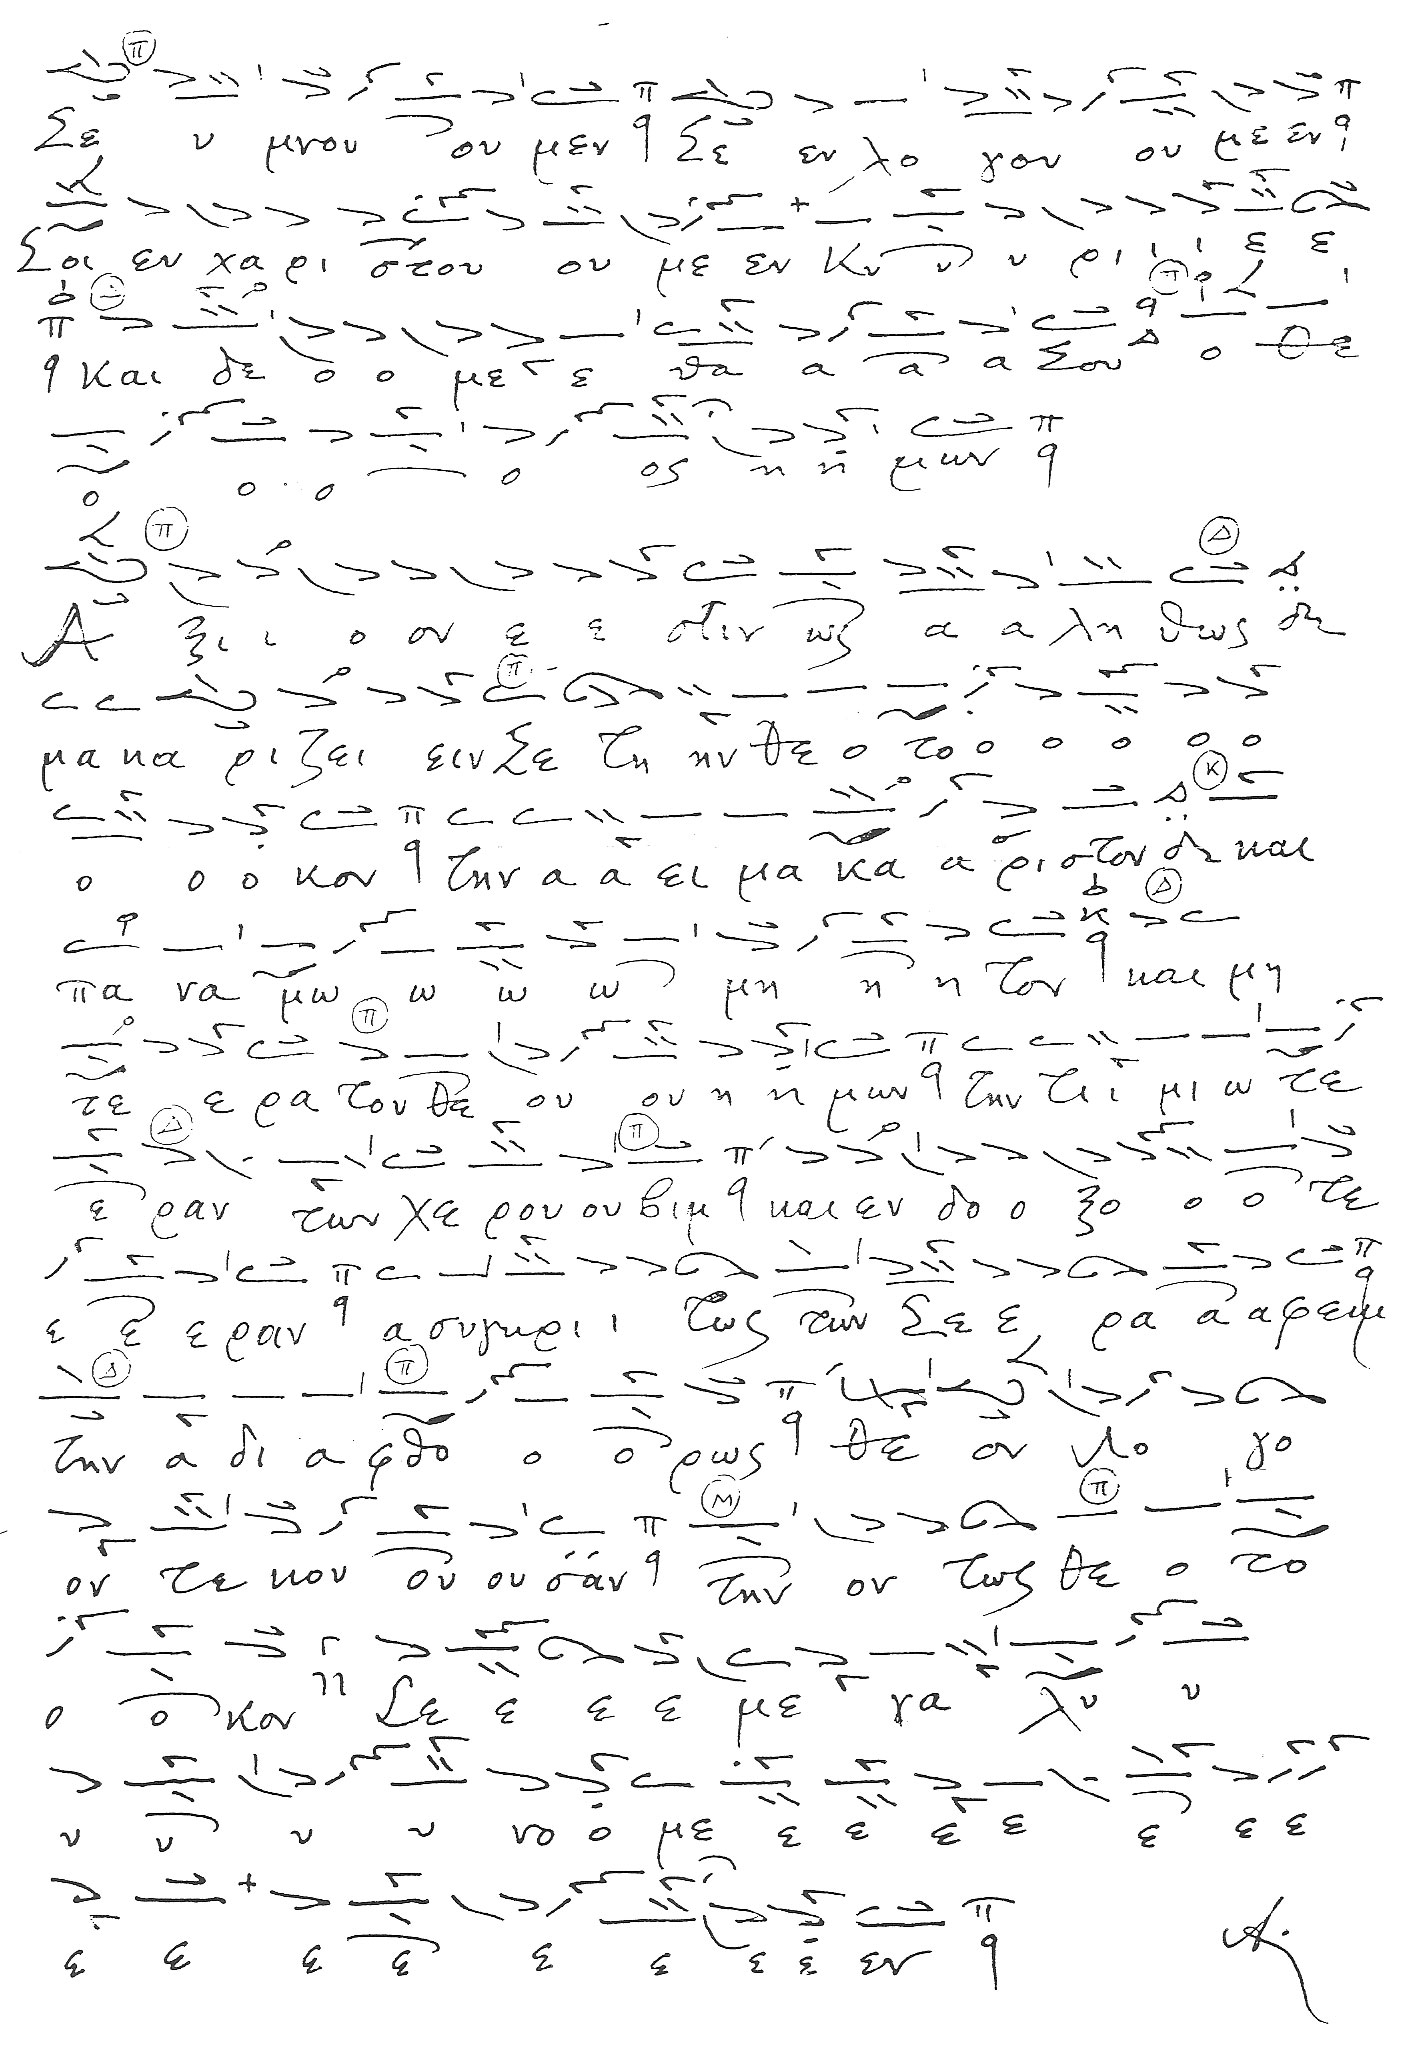 Σε υ μνου ου μεν Σε ευ λο γου ου με εν
Σοι ευ χα ρι στου ου με εν Κυ υ υ ρι ι ι ε ε
και δε ο ο με ε θα α α α Σου ο Θε
ο ο ο ο ος η η μων
Α ξι ι ο ον ε ε στιν ως α α λη θως
μα κα ρι ζει ειν Σε τη ην Θε ο το ο ο ο ο ο
ο ο ο κον την α α ει μα κα α ρι στον και
πα να μω ω ω ω μη η η τον και μη
τε ε ρα του Θε ου ου η η μων την τι ι μι ω τε
ε ραν των χε ρου ου βιμ και εν δο ο ξο ο ο τε
ε ε ε ραν α συγκρι ι τως των Σε ε ρα α α φειμ
την α δι α φθο ο ο ρως Θε ον λο γο
ον τε κου ου ου σαν την ον τως Θε ο το
ο ο κον Σε ε ε ε με γα λυ υ
υ υ υ υ νο ο με ε ε ε ε ε ε ε
ε ε ε ε ε ε ε ε εν